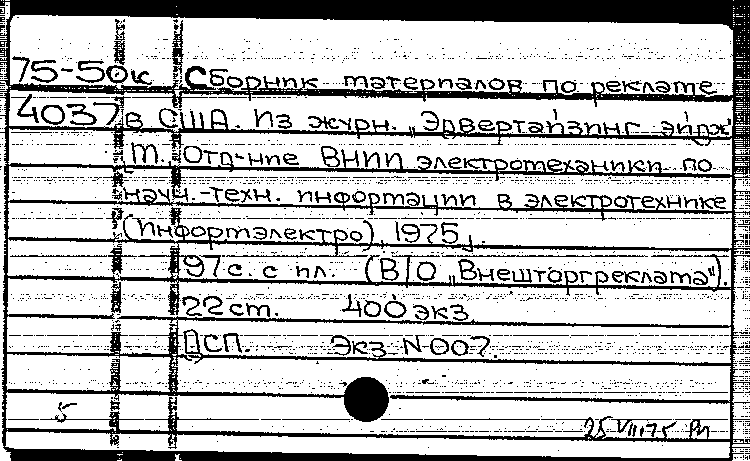 75-50к Сборник материалов по рекламе
4037 в США. Из журн. „Эдвертайзинг эйдж"
[М., Отд-ние ВНИИ электротеханики по
науч.-техн. информации в электротехнике
(Информэлектро), 1975].
97 с. с ил. (В/О „Внешторгреклама").
22 см. 400 экз.
ДСП. Экз N 007.
5 25 VIII 75